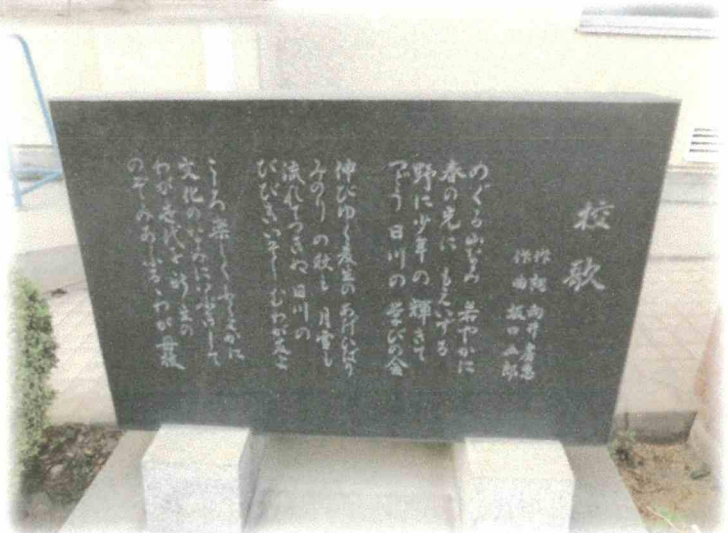 校歌
作詞 向井
作曲 坂口五郎
めぐる山なみ 若やかに
春の光に もえいずる
野に少年の 輝きて
つどう 日川の 学びの舎
伸びゆく麦生の あげひばり
みのりの秋も 月雪も
流れてつきぬ 日川の
ひびきにいそしむわが友よ
こころ 楽しくすこやかに
文化の
わが世代を 新生の
のぞみあふるるわが母校